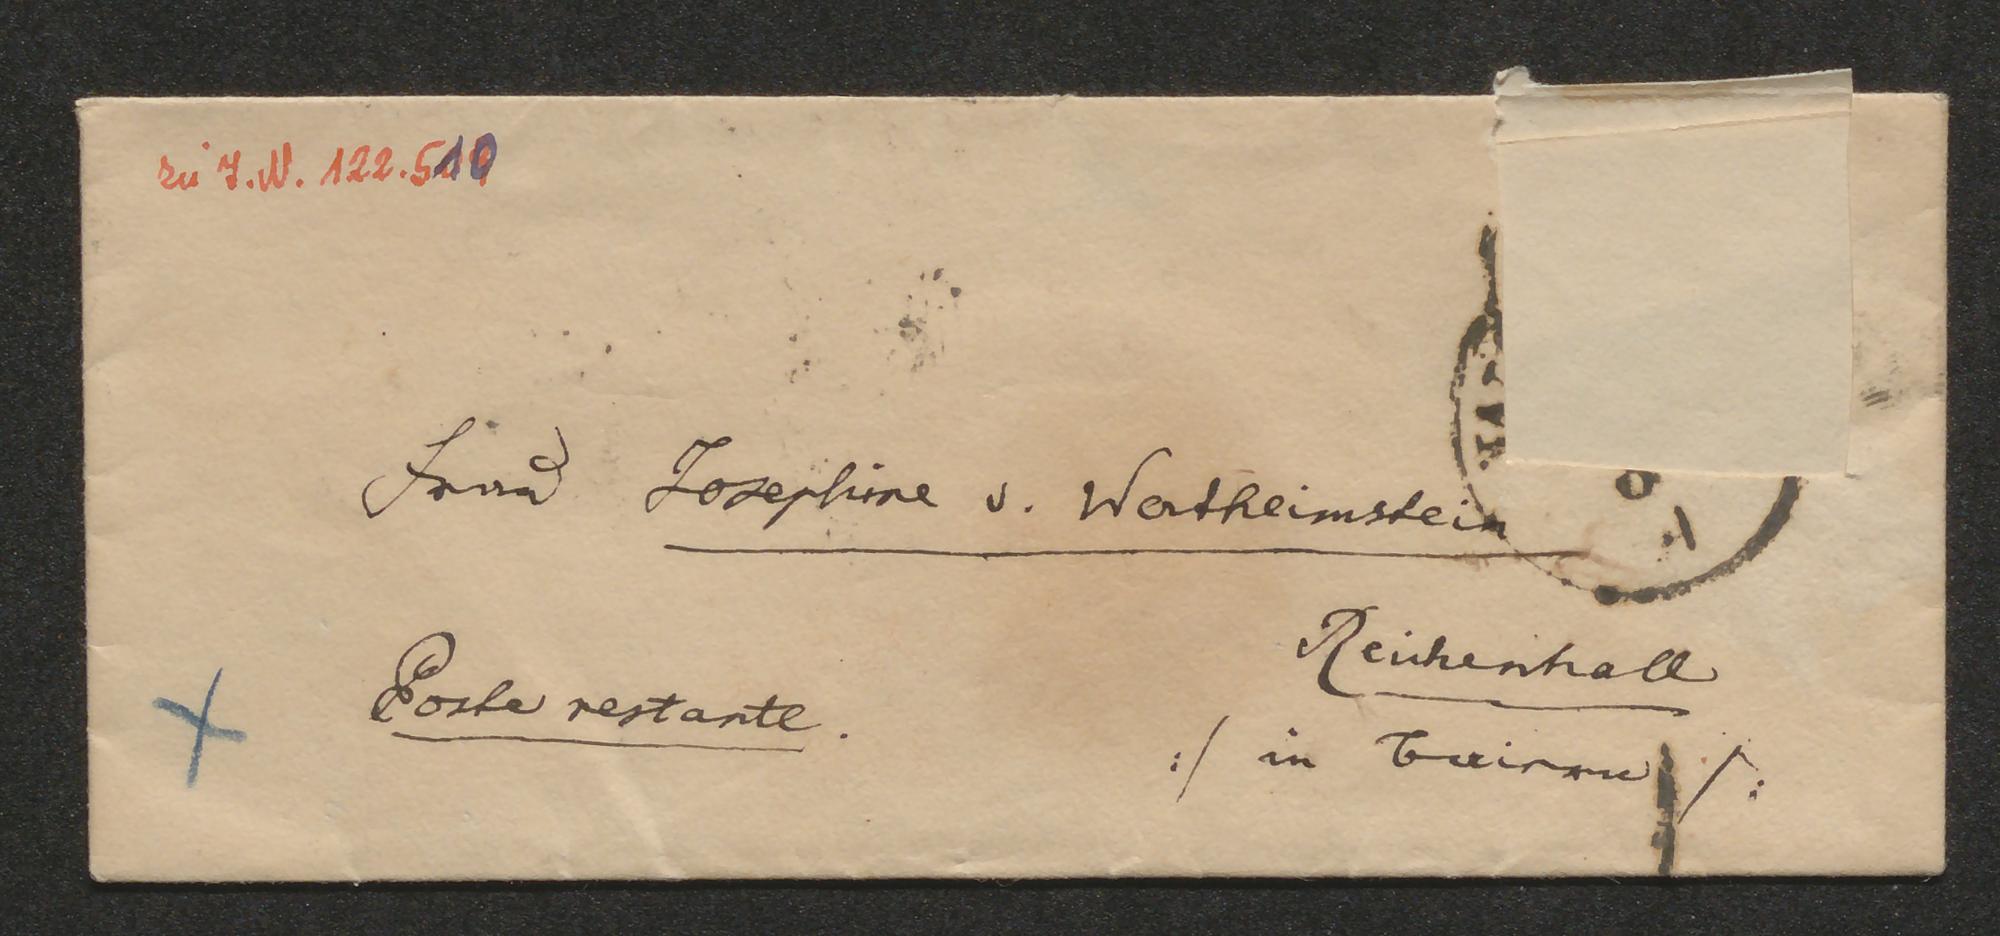 zu I.N. 122.510
Frau Josephine v. Wertheimstein
Poste restante.
Reichenhall
:/ in Baiern /: